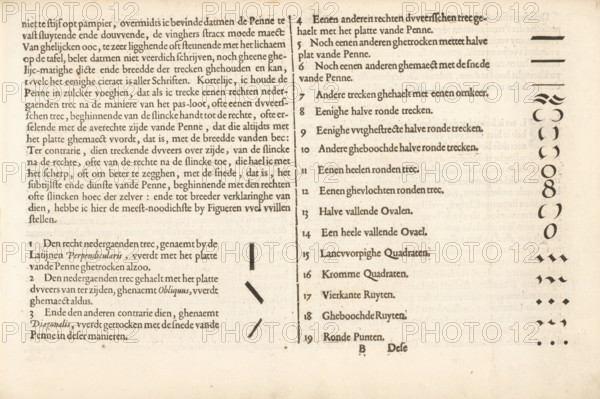 niet te stijf opt pampier, overmidts ic bevinde datmen de Penne te
vast sluytende ende douvvende, de vinghers stracx moede maect
Van ghelijcken ooc, te zeer ligghende oft steunende met het lichaem
op de tafel, belet datmen niet veerdich schrijven, noch gheene ghe-
lijc-matighe dicte ende breedde der trecken ghehouden en kan,
t'welc het eenighe cieraet is aller Schriften. Kortelijc, ic houde de
Penne in zulcker voeghen, dat als ic trecke eenen rechten neder-
gaenden trec na de maniere van het pas-loot, ofte eenen dvveers-
schen trec, beghinnende van de slincke handt tot de rechte, ofte er-
selende met de averechte zijde vande Penne, dat die altijdts met
het platte ghemaect vvordt, dat is, met de breedde vanden bec:
Ter contrarie, dien treckende dvveers over zijde, van de slincke
na de rechte, ofte van de rechte na de slincke toe, die hael ic met
het scherp, oft om beter te zegghen, met de snede, dat is, het
subtijlste ende dunste vande Penne, beghinnende met den rechten
ofte slincken hoec der zelver: ende tot breeder verklaringhe van
dien, hebbe ic hier de meest-noodichste by Figueren vvel vvillen
stellen.
1 Den recht nedergaenden trec, genaemt by de
Latijnen Perpendicularis, vverdt met het platte
vande Penne ghetrocken alzoo.
2 Den nedergaenden trec gehaelt met het platte
dvveers van ter zijden, ghenaemt Obliquus, vverdt
ghemaect aldus.
3 Ende den anderen contrarie dien, ghenaemt
Diagonalis, vverdt getrocken met de snede vande
Penne in deser manieren.
4 Eenen anderen rechten dvveersschen trec ge-
haelt met het platte vande Penne.
5 Noch eenen anderen ghetrocken mettet halve
plat vande Penne.
6 Noch eenen anderen ghemaect met de snede
vande Penne.
7 Andere trecken ghehaelt met eenen omkeer.
8 Eenighe halve ronde trecken.
9 Eenighe vvtghestrecte halve ronde trecken.
10 Andere gheboochde halve ronde trecken.
11 Eenen heelen ronden trec.
12 Eenen ghevlochten ronden trec.
13 Halve vallende Ovalen.
14 Een heele vallende Ovael.
15 Lancvvorpighe Quadraten.
16 Kromme Quadraten.
17 Vierkante Ruyten.
18 Gheboochde Ruyten.
19 Ronde Punten.
B Dese